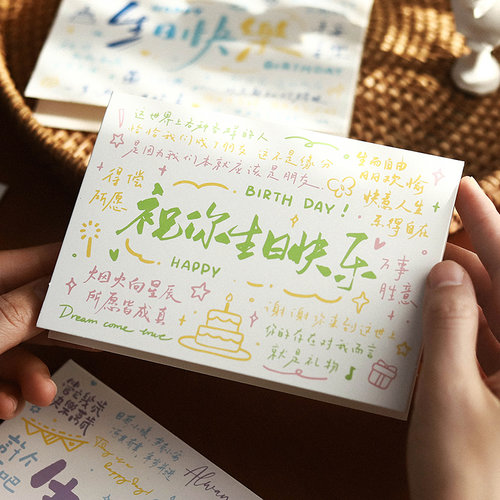 生日快樂
BIRTHDAY
这世界上有那么多的人
恰恰我们成了朋友 这不是缘分
是因为我们本就应该是朋友
梦而自由
朋友欢愉
快意人生
乐得自在
得偿
所愿
BIRTH DAY!
祝你生日快乐
HAPPY
万事
胜意
烟火向星辰
所愿皆成真
Dream come true
谢谢你来到这世上
你的存在对我而言
就是礼物
生
Always